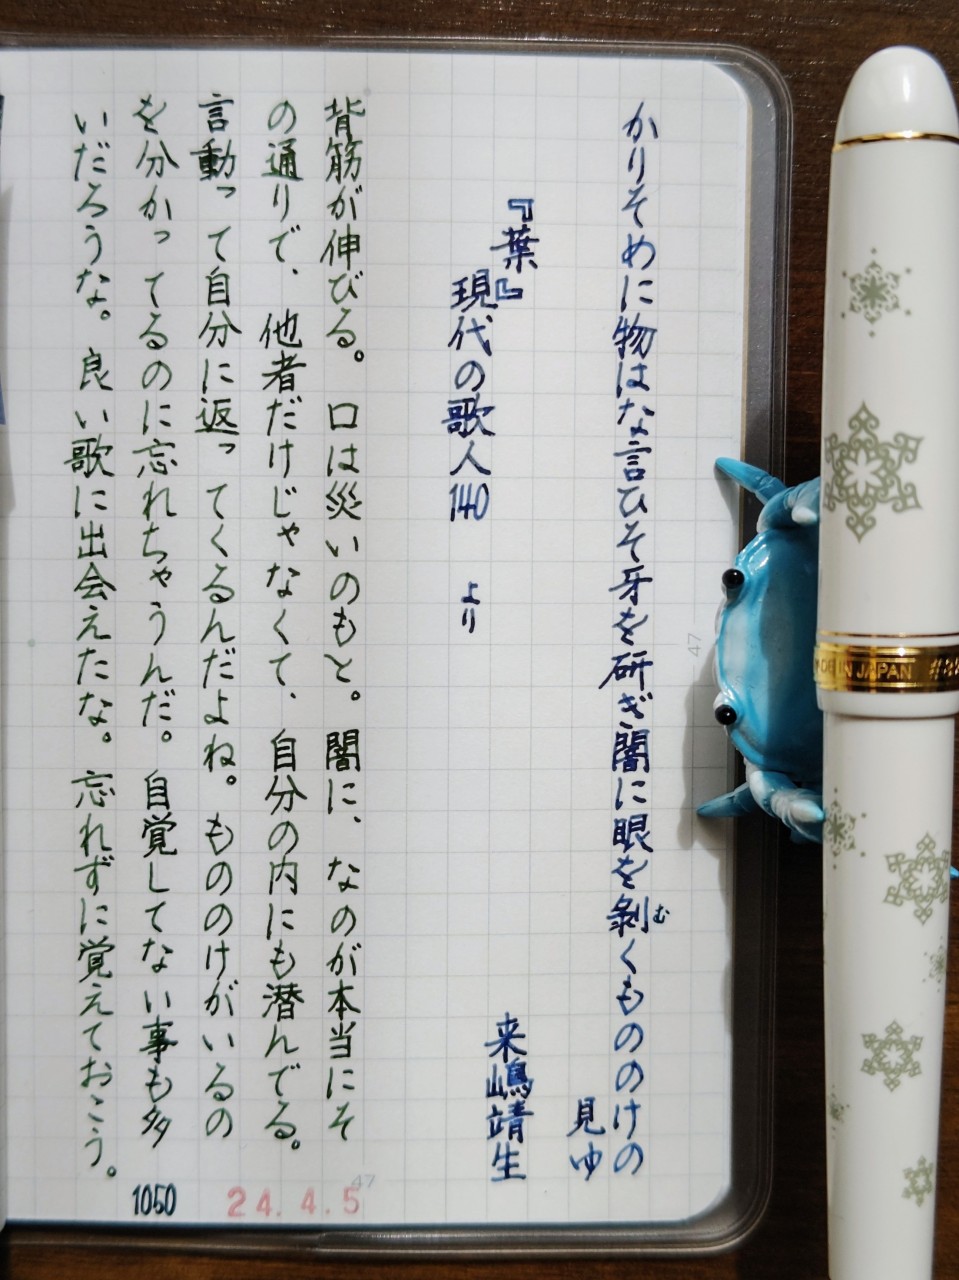 かりそめに物はな言ひそ牙を研ぎ闇に眼を剝くもののけの
む
見ゆ
来嶋靖生
『葉』
現代の歌人140 より
背筋が伸びる。口は災いのもと。闇に、なのが本当にそ
の通りで、他者だけじゃなくて、自分の内にも潜んでる。
言動って自分に返ってくるんだよね。もののけがいるの
を分かってるのに忘れちゃうんだ。自覚してない事も多
いだろうな。良い歌に出会えたな。忘れずに覚えておこう。
1050
24.4.5
47
47
MADE IN JAPAN